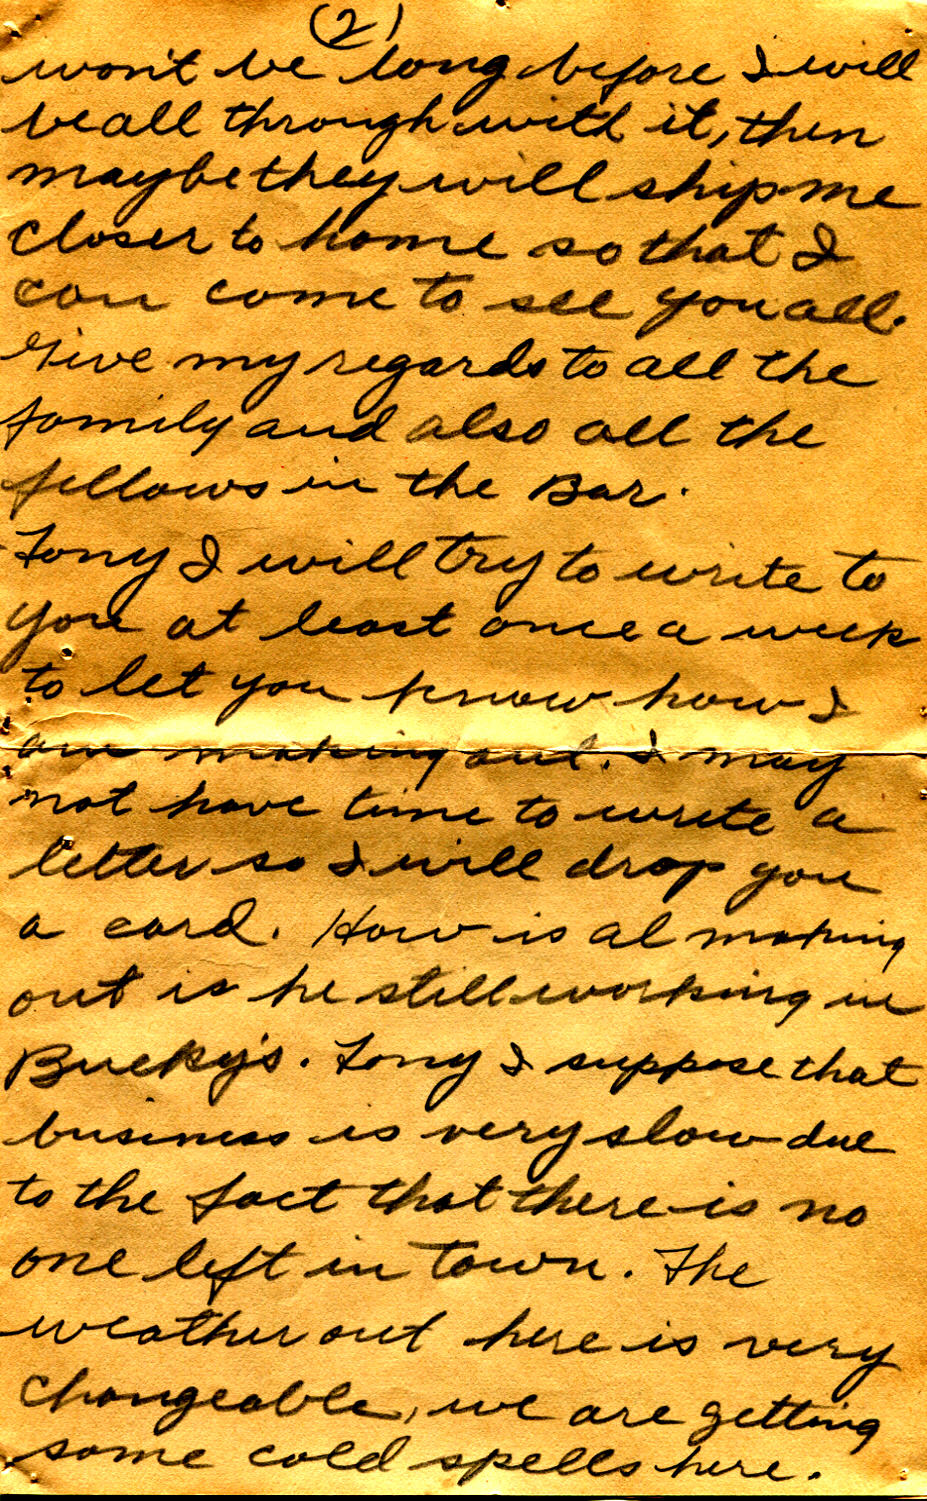 (2)
won't be long before I will
be all through with it, then
maybe they will ship me
closer to home so that I
can come to see you all.
Give my regards to all the
family and also all the
fellows in the Bar.
Tony I will try to write to
you at least once a week
to let you know how I
am making out. I may
not have time to write a
letter so I will drop you
a card. How is Al making
out is he still working in
Bucky's. Tony I suppose that
business is very slow due
to the fact that there is no
one left in town. The
weather out here is very
changeable, we are getting
some cold spells here.